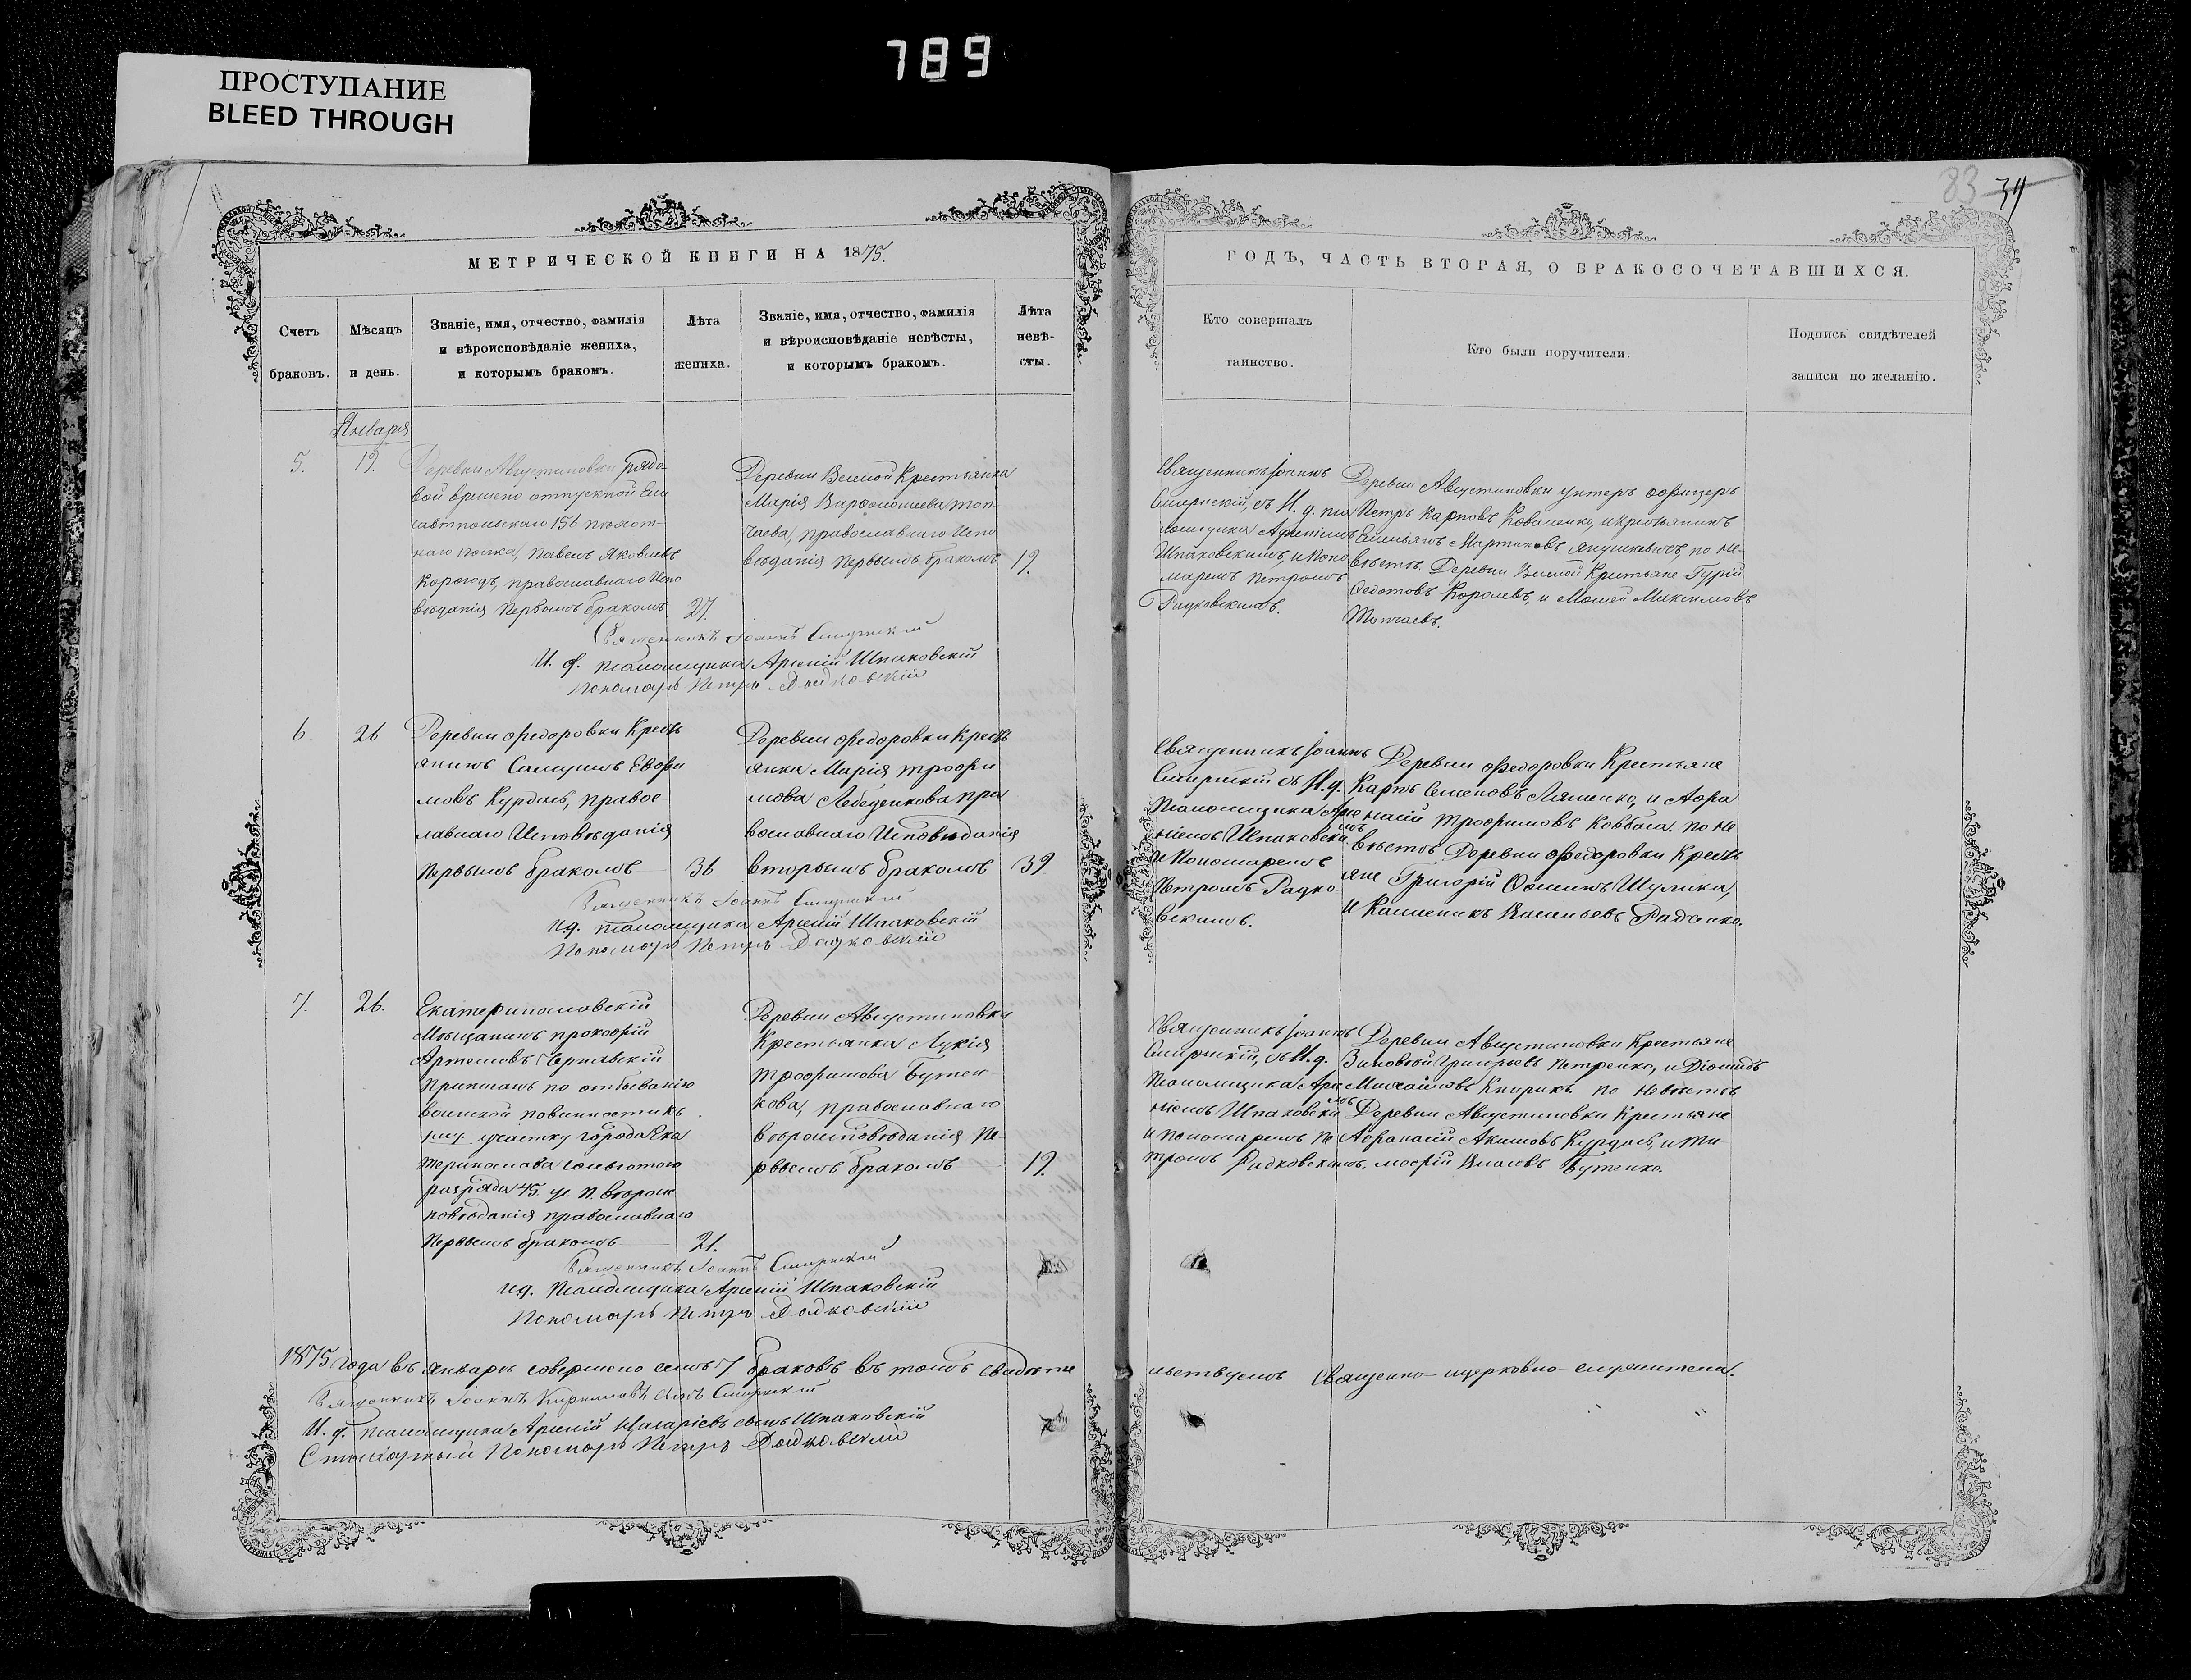 789
ПРОСТУПАНИЕ
BLEED THROUGH
83 39
МЕТРИЧЕСКОЙ КНИГИ НА 1875.
Счетъ браковъ.
Мѣсяцъ и день.
Званіе, имя, отчество, фамилія
и вѣроисповѣданіе жениха,
и которымъ бракомъ.
Лѣта жениха.
Званіе, имя, отчество, фамилія
и вѣроисповѣданіе невѣсты,
и которымъ бракомъ.
Лѣта невѣ-
сты.
ГОДЪ, ЧАСТЬ ВТОРАЯ, О БРАКОСОЧЕТАВШИХСЯ.
Кто совершалъ
таинство.
Кто были поручители.
Подпись свидѣтелей
записи по желанію.
Января
5.
19.
Деревни Августиновки рядо
вой времено отпускной
156 пѣхот-
наго полка, Павелъ Яковлевъ
Короюдъ, православнаго Испо
вѣданія первымъ бракомъ
27.
Деревни Вешой Крестьянка
Марія Варфоломеева Топ
чаева, православнаго Испо
вѣданія первымъ бракомъ
19.
Священникъ Іоаннъ
съ И. д. пса
ломщика Арсеніемъ
Шпаковскимъ, и Поно
маремъ Петромъ
Радковскимъ.
Деревни Августиновки унтеръ офицеръ
Петръ Карповъ Коваленко, и крестьянинъ
Емельянъ Мартиновъ Янушкевичъ, по не-
вѣстѣ. Деревни Крестьяне Гурій
Федотовъ Королевъ, и Моисей Максимовъ
Топчаевъ.
Священникъ Іоаннъ
И. д. псаломщика Арсеній Шпаковскій
Пономарь Петръ Радковскій
6
26
Деревни Федоровки Кресть
янинъ Самуилъ Евфи
мовъ Курдась, правос
лавнаго Исповѣданія
первымъ бракомъ
36
Деревни Федоровки Кресть
янка Марія Трофи
мова Лебеденкова пра
вославнаго Исповѣданія
вторымъ бракомъ
39
Священникъ Іоаннъ
съ И. д.
Псаломщика Арсе
ніемъ Шпаковскимъ
и Пономаремъ
Петромъ Радко-
вскимъ.
Деревни Федоровки Крестьяне
Карпъ Семеновъ Ляшенко, и Афа
насій Трофимовъ Ковбаса. по не
вѣстѣ. Деревни Федоровки Кресть
яне Григорій Фоминъ Шулика,
и Калиникъ Васильевъ Радченко.
Священникъ Іоаннъ
И д. псаломщика Арсеній Шпаковскій
Пономарь Петръ Радковскій
7.
26.
Екатеринославскій
Мѣщанинъ Прокофій
Артемовъ Чернявскій
приписанъ по отбыванію
воинской повинности къ
участку города Ека
теринослава льготою
разряда 45.
повѣданія православнаго
первымъ бракомъ
21.
Деревни Августиновки
Крестьянка Лукія
Трофимова Бутен
кова, православнаго
вѣроисповѣданія пе-
рвымъ бракомъ
19.
Священникъ Іоаннъ
съ И. д.
Псаломщика Арсе
ніемъ Шпаковскимъ
и пономаремъ Пе
тромъ Радковскимъ.
Деревни Августиновки Крестьяне
Зиновій Григорьевъ Петренко, и Діомидъ
Михайловъ Кнырикъ. по невѣстѣ
Деревни Августиновки Крестьяне
Афанасій Акимовъ Курдась, и Ти
мофій Власовъ Бутенко.
Священникъ Іоаннъ
и д. Псаломщика Арсеній Шпаковскій
Пономарь Петръ Радковскій
1875 года въ Январѣ совершено семь 7 браковъ въ томъ свидѣте
льствуемъ Священно-церковно-служители.
Священникъ Іоаннъ
И. д. псаломщика Арсеній сынъ Шпаковскій
Пономарь Петръ Радковскій